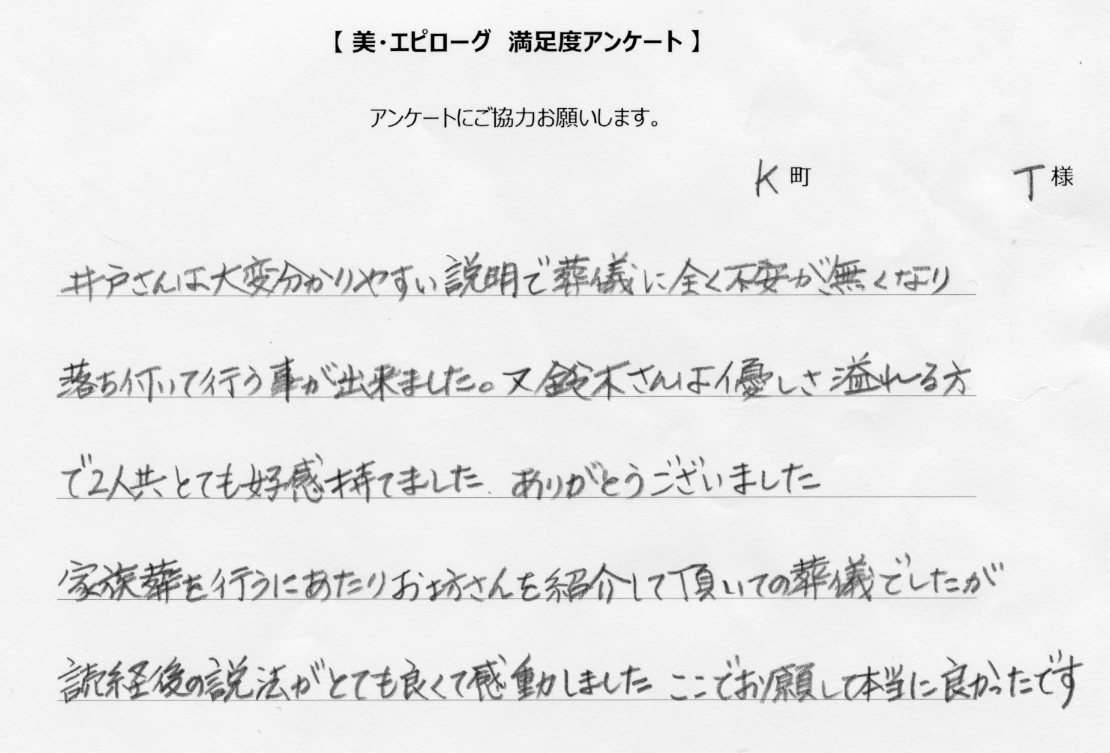 【 美・エピローグ 満足度アンケート 】
アンケートにご協力お願いします。
K 町 T 様
井戸さんは大変分かりやすい説明で葬儀に全く不安が無くなり
落ち付いて行う事が出来ました。又鈴木さんは優しさ溢れる方
で2人共とても好感持てました ありがとうございました
家族葬を行うにあたりお坊さんを紹介して頂いての葬儀でしたが
読経後の説法がとても良くて感動しました ここでお願して本当に良かったです